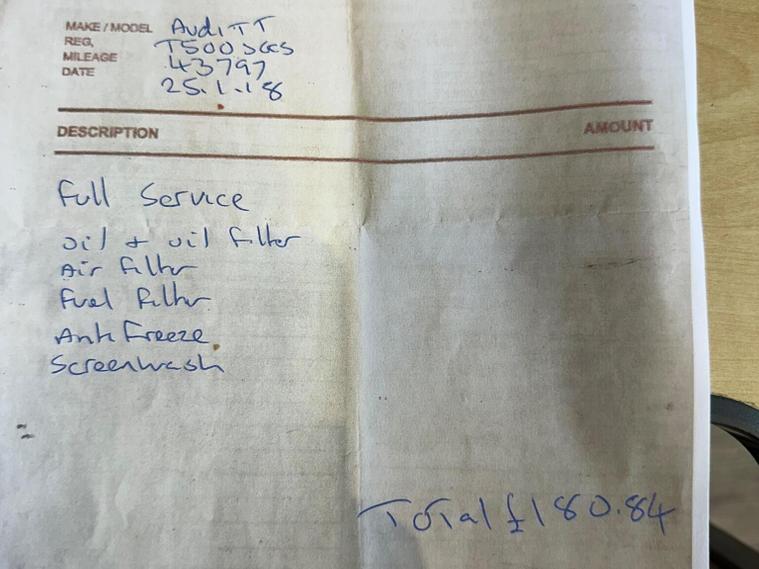 MAKE / MODEL Audi TT
REG,
MILEAGE 43797
DATE 25.1.18
DESCRIPTION AMOUNT
Full Service
oil + oil filter
Air filter
Fuel Filter
Anti Freeze
Screenwash
Total £180.84